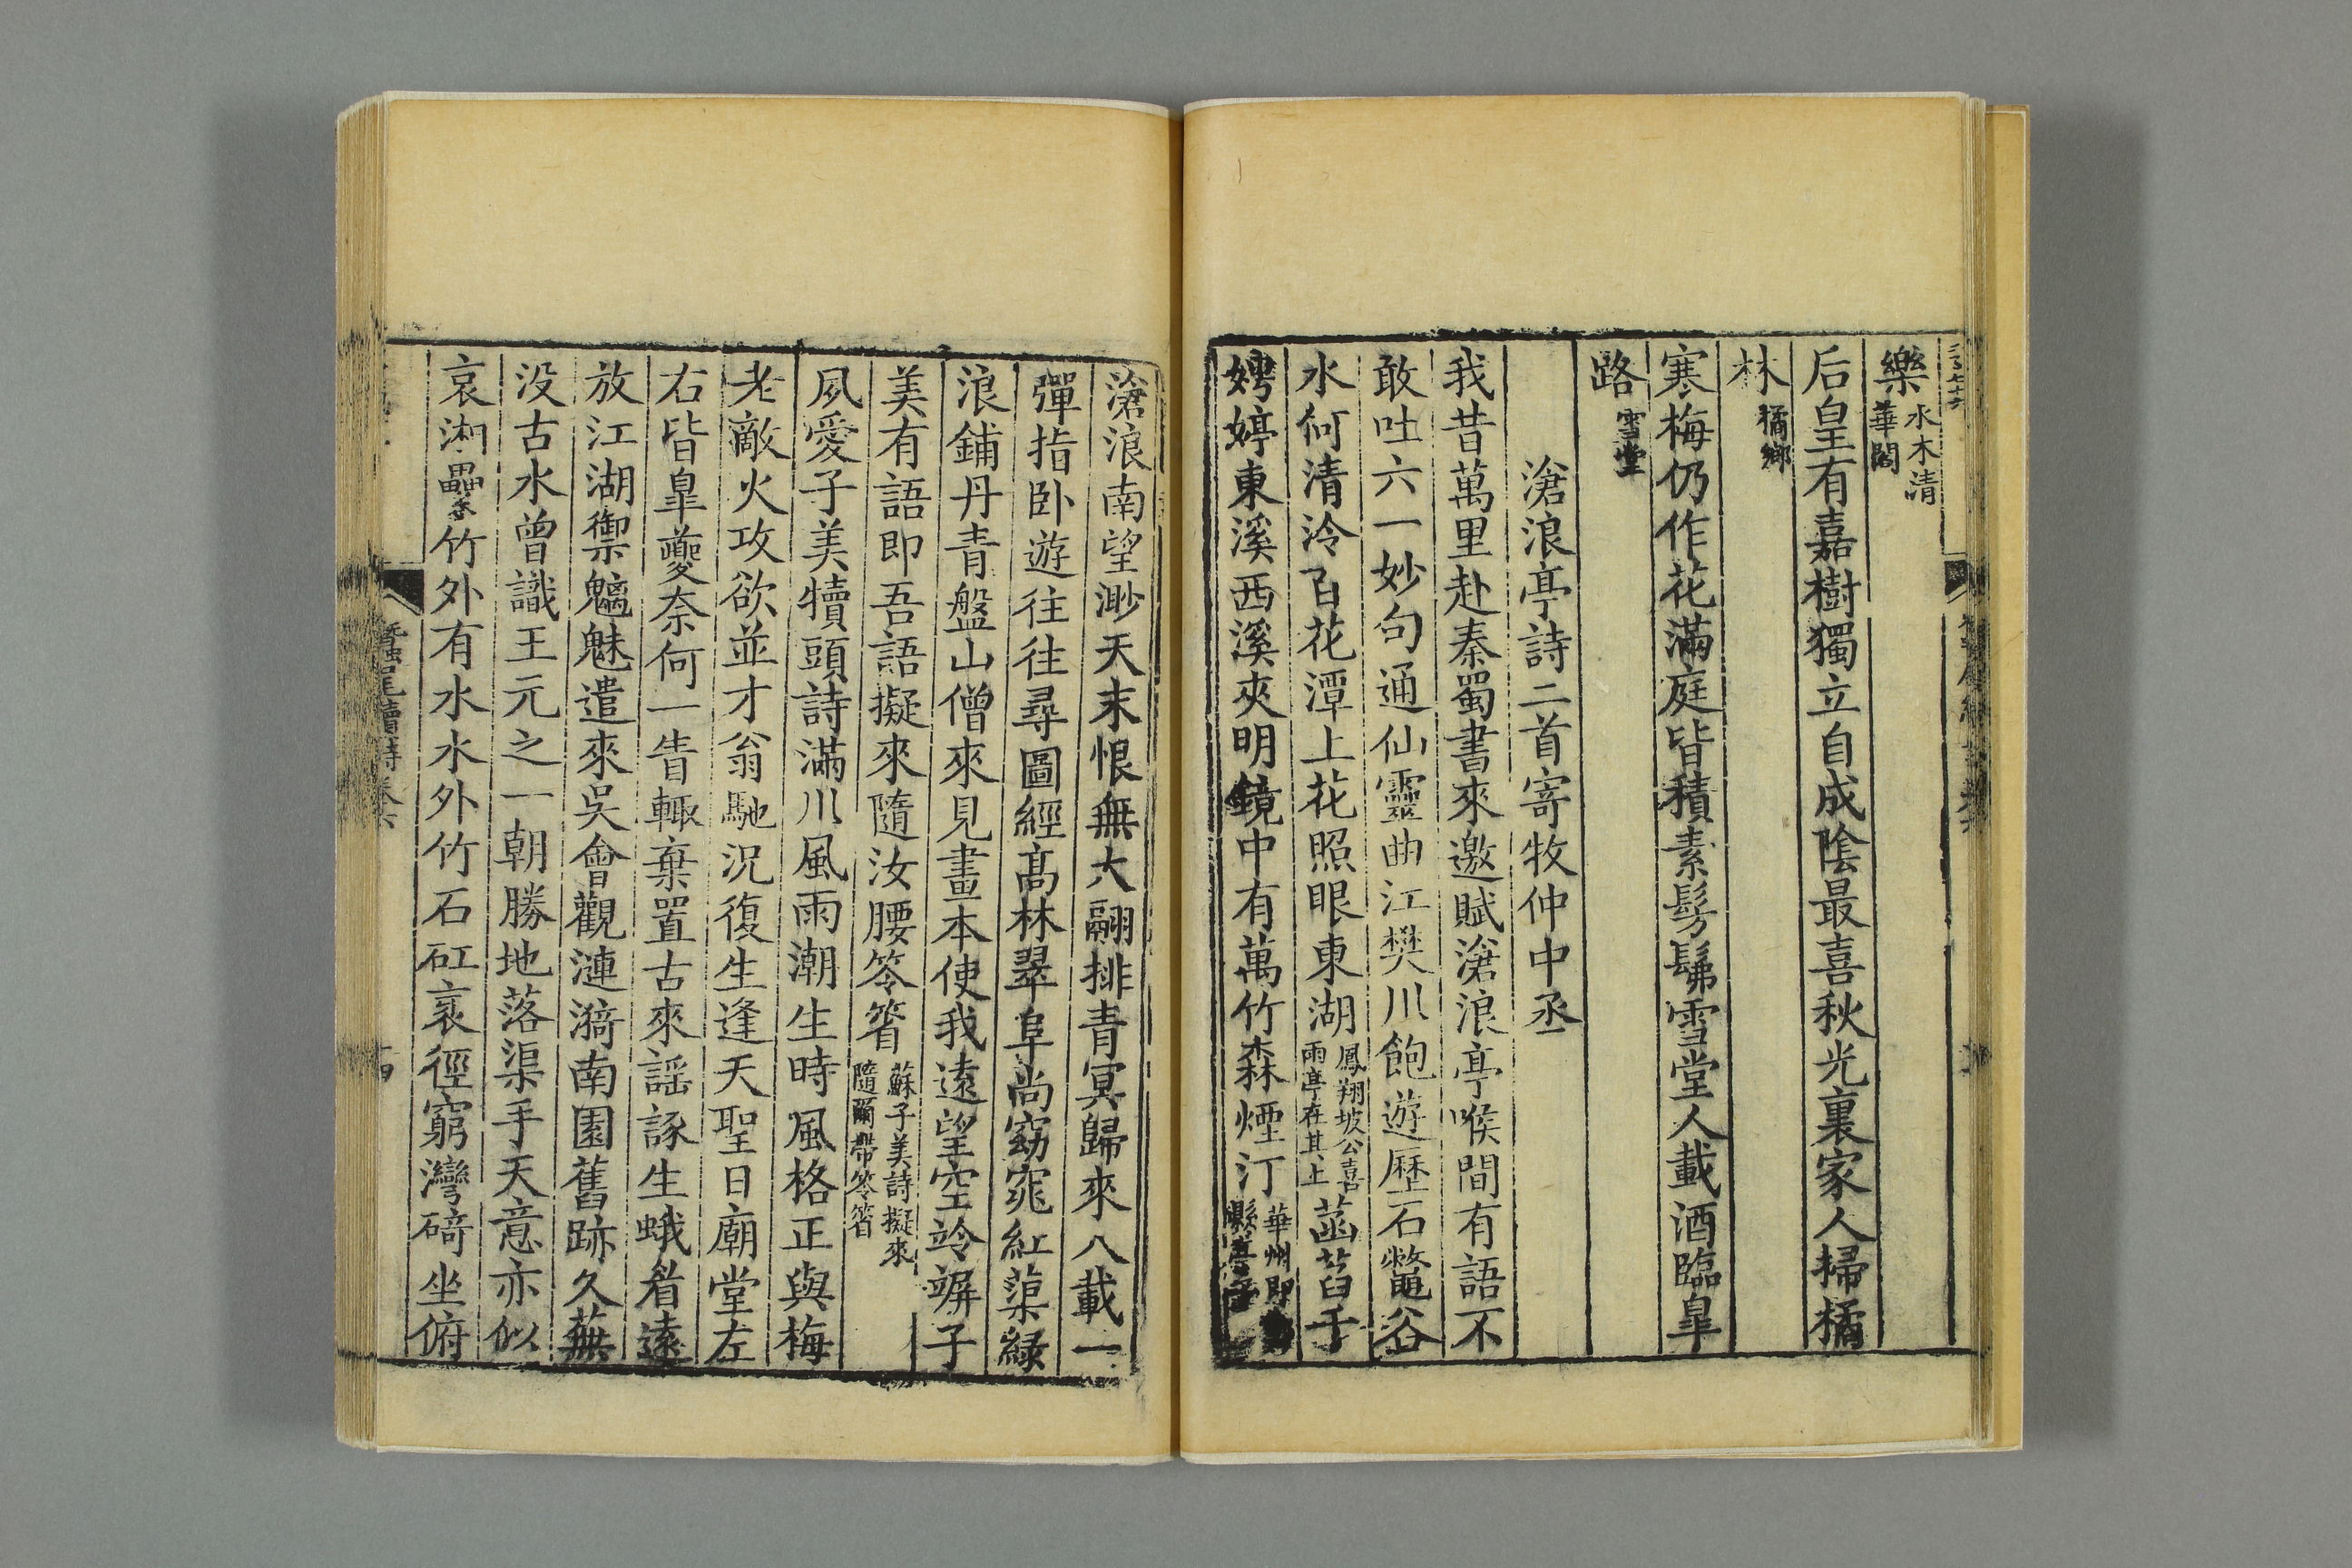 樂水木清華閣
后皇有嘉樹獨立自成陰最喜秋光裏家人掃橘
林橘鄉
寒梅仍作花滿庭皆積素髣髴雪堂人載酒臨皐
路雪堂
滄浪亭詩二首寄牧仲中丞
我昔萬里赴秦蜀書來邀賦滄浪亭喉間有語不
敢吐六一妙句通仙靈曲江樊川飽遊歷石鼈谷
水何清泠百花潭上花照眼東湖鳳翔坡公喜雨亭在其上菡萏手
娉婷東溪西溪夾明鏡中有萬竹森煙汀華州即縣亭
滄浪南望渺天末恨無大翮排青冥歸來八載一
彈指卧遊往往尋圖經髙林翠阜尚窈窕紅蕖緑
浪鋪丹青盤山僧來見畫本使我遠望空竛竮子
美有語即吾語擬來隨汝腰笭箵蘇子美詩擬來隨爾帶笭箵
夙愛子美犢頭詩滿川風雨潮生時風格正與梅
老敵火攻欲並才翁馳況復生逢天聖日廟堂左
右皆皐夔奈何一眚輙棄置古來謡諑生蛾眉遠
放江湖禦魑魅遣來吳會觀漣漪南園舊跡久蕪
没古水曾識王元之一朝勝地落渠手天意亦似
哀湘纍叅竹外有水水外竹石矼裹徑窮灣碕坐俯
蠶尾續詩卷六
十四